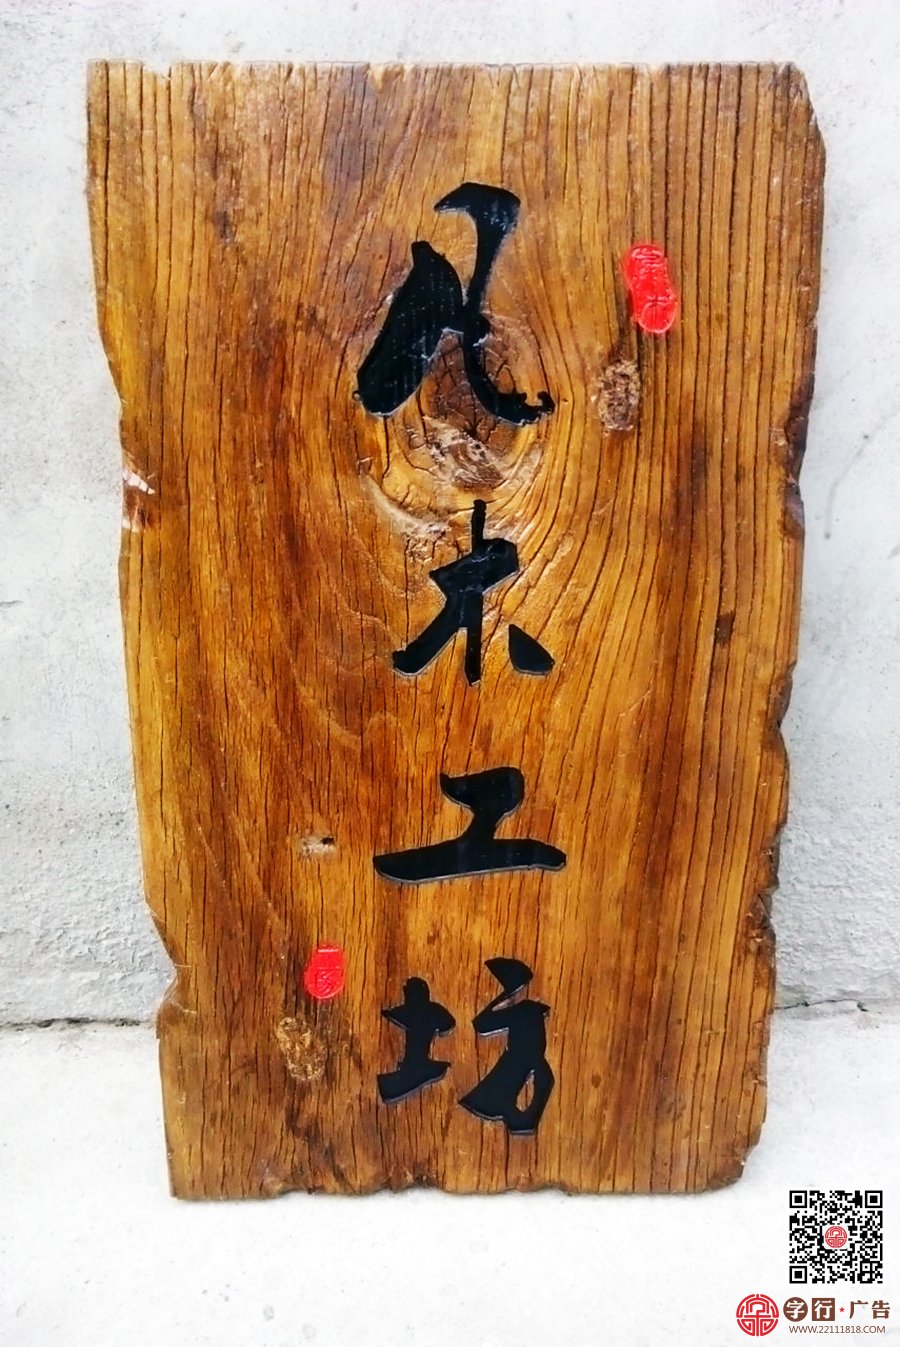 凡木工坊
字行★广告
WWW.22111818.COM